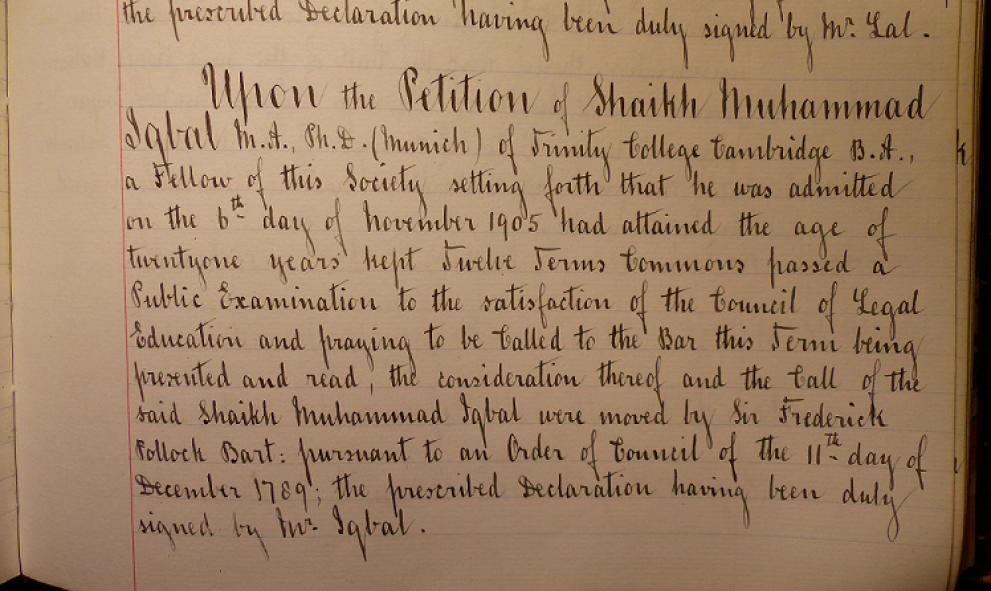 the prescribed Declaration having been duly signed by Mr. Lal.
Upon the Petition of Shaikh Muhammad
Iqbal M.A., Ph.D. (Munich) of Trinity College Cambridge B.A.,
a Fellow of this Society setting forth that he was admitted
on the 6th day of November 1905 had attained the age of
twentyone years kept Twelve Terms Commons passed a
Public Examination to the satisfaction of the Council of Legal
Education and praying to be Called to the Bar this Term being
presented and read, the consideration thereof and the Call of the
said Shaikh Muhammad Iqbal were moved by Sir Frederick
Pollock Bart: pursuant to an Order of Council of the 11th day of
December 1789; the prescribed Declaration having been duly
signed by Mr. Iqbal.